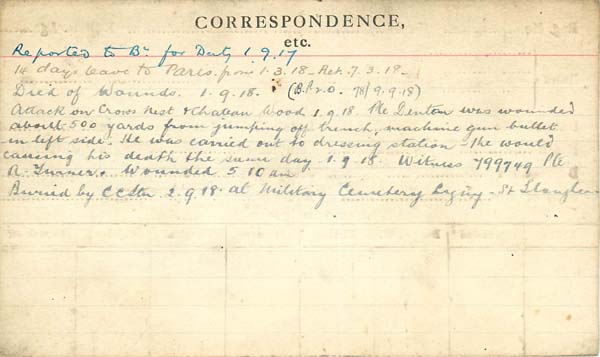 CORRESPONDENCE,
etc.
Reported to Bn for Duty 1.9.17
14 days leave to Paris from 1.3.18 - Ret. 7.3.18 -
Died of Wounds. 1.9.18. (B.P.2.O. 78/9.9.18)
Attack on Crows Nest & Chateau Wood 1.9.18 Pte Denton was wounded
about 500 yards from jumping off trench, machine gun bullet
in left side. He was carried out to dressing station - the would
causing his death the same day 1.9.18. Witness 799749 Pte
A. Turner. Wounded 5.10 am
Buried by C.C.Stn 2.9.18. at Military Cemetery Ligny - St